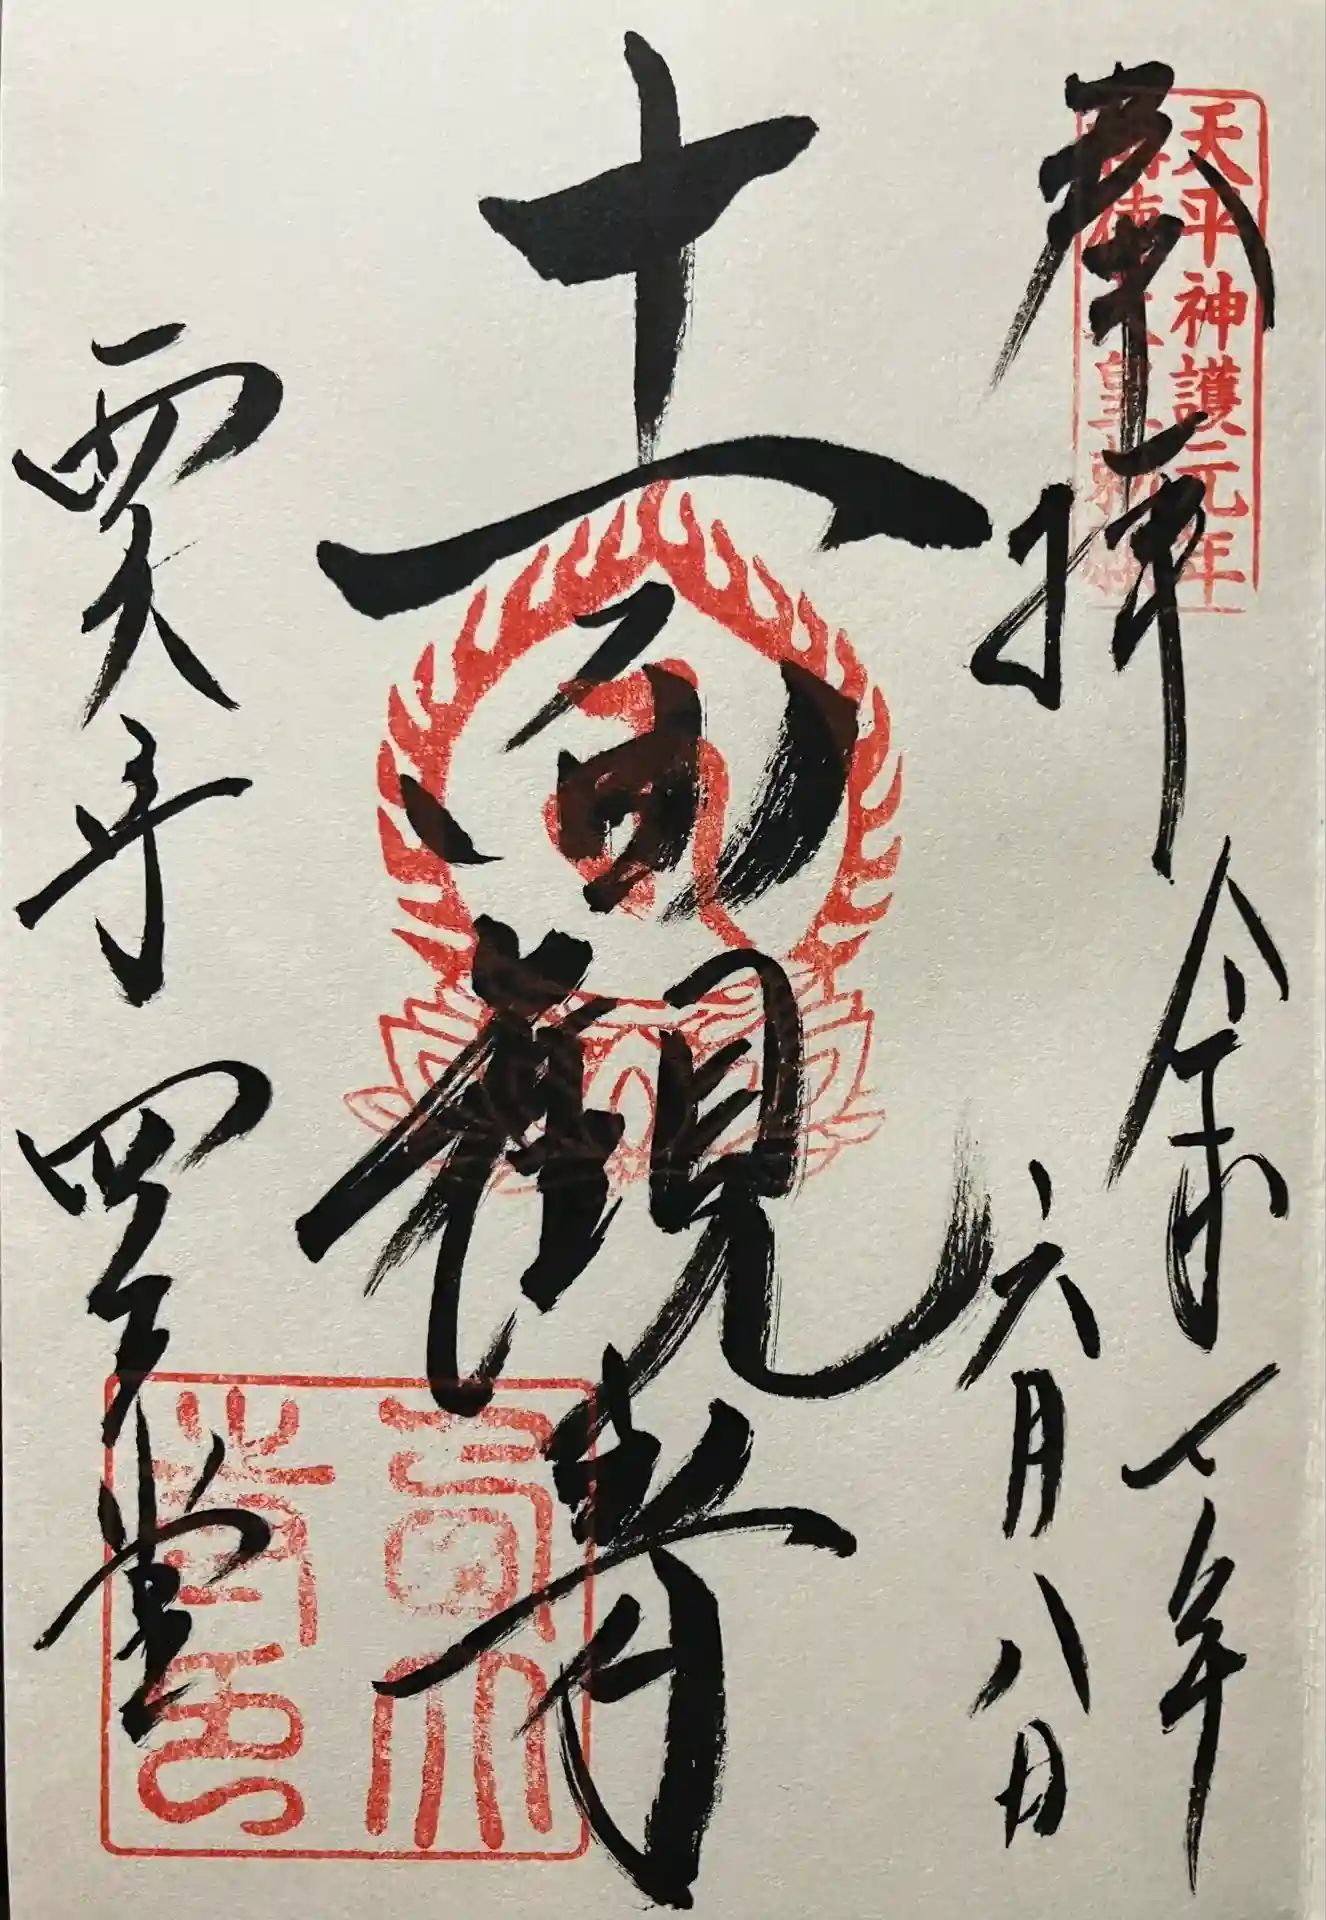 奉拝
天平神護元年
稱徳天皇勅願
令和七年
六月八日
十一面観音
西大寺四王堂